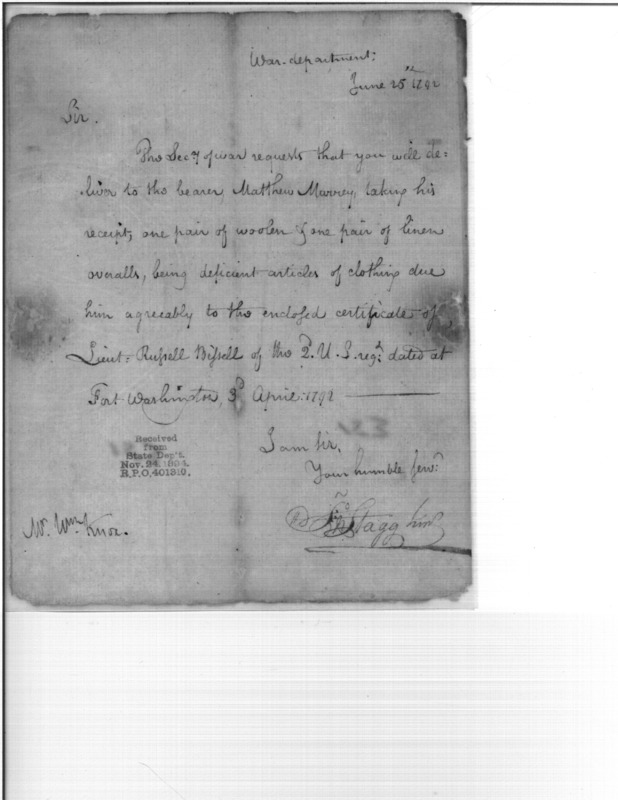 War-department:
June 25th 1792
Sir.
The Secy of war requests that you will de=
liver to the bearer, Matthew Marrey, taking his
receipt, one pair of woolen & one pair of linen
overalls, being deficient articles of clothing due
him agreeably to the enclosed certificate of
Lieut: Russell Bissell of the 2d. U.S. regt. dated at
Fort Washington, 3d April: 1792
I am sir.
Your humble servt
Received
from
State Dep't.
Nov. 24, 1894.
R.P.O. 401310.
Jno Stagg Junr
Mr. Wm Knox.